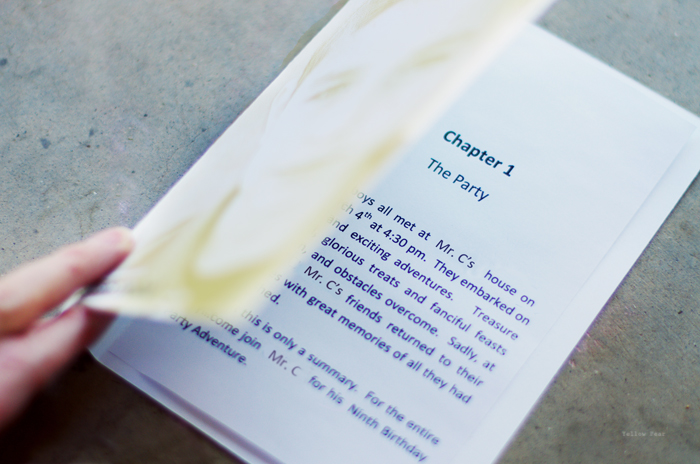 Chapter 1
The Party
oys all met at Mr. C's house on
ch 4th at 4:30 pm. They embarked on
nd exciting adventures. Treasure
glorious treats and fanciful feasts
and obstacles overcome. Sadly, at
Mr. C's friends returned to their
with great memories of all they had
ed.
this is only a summary. For the entire
ome join Mr. C for his Ninth Birthday
arty Adventure.
Yellow Pear